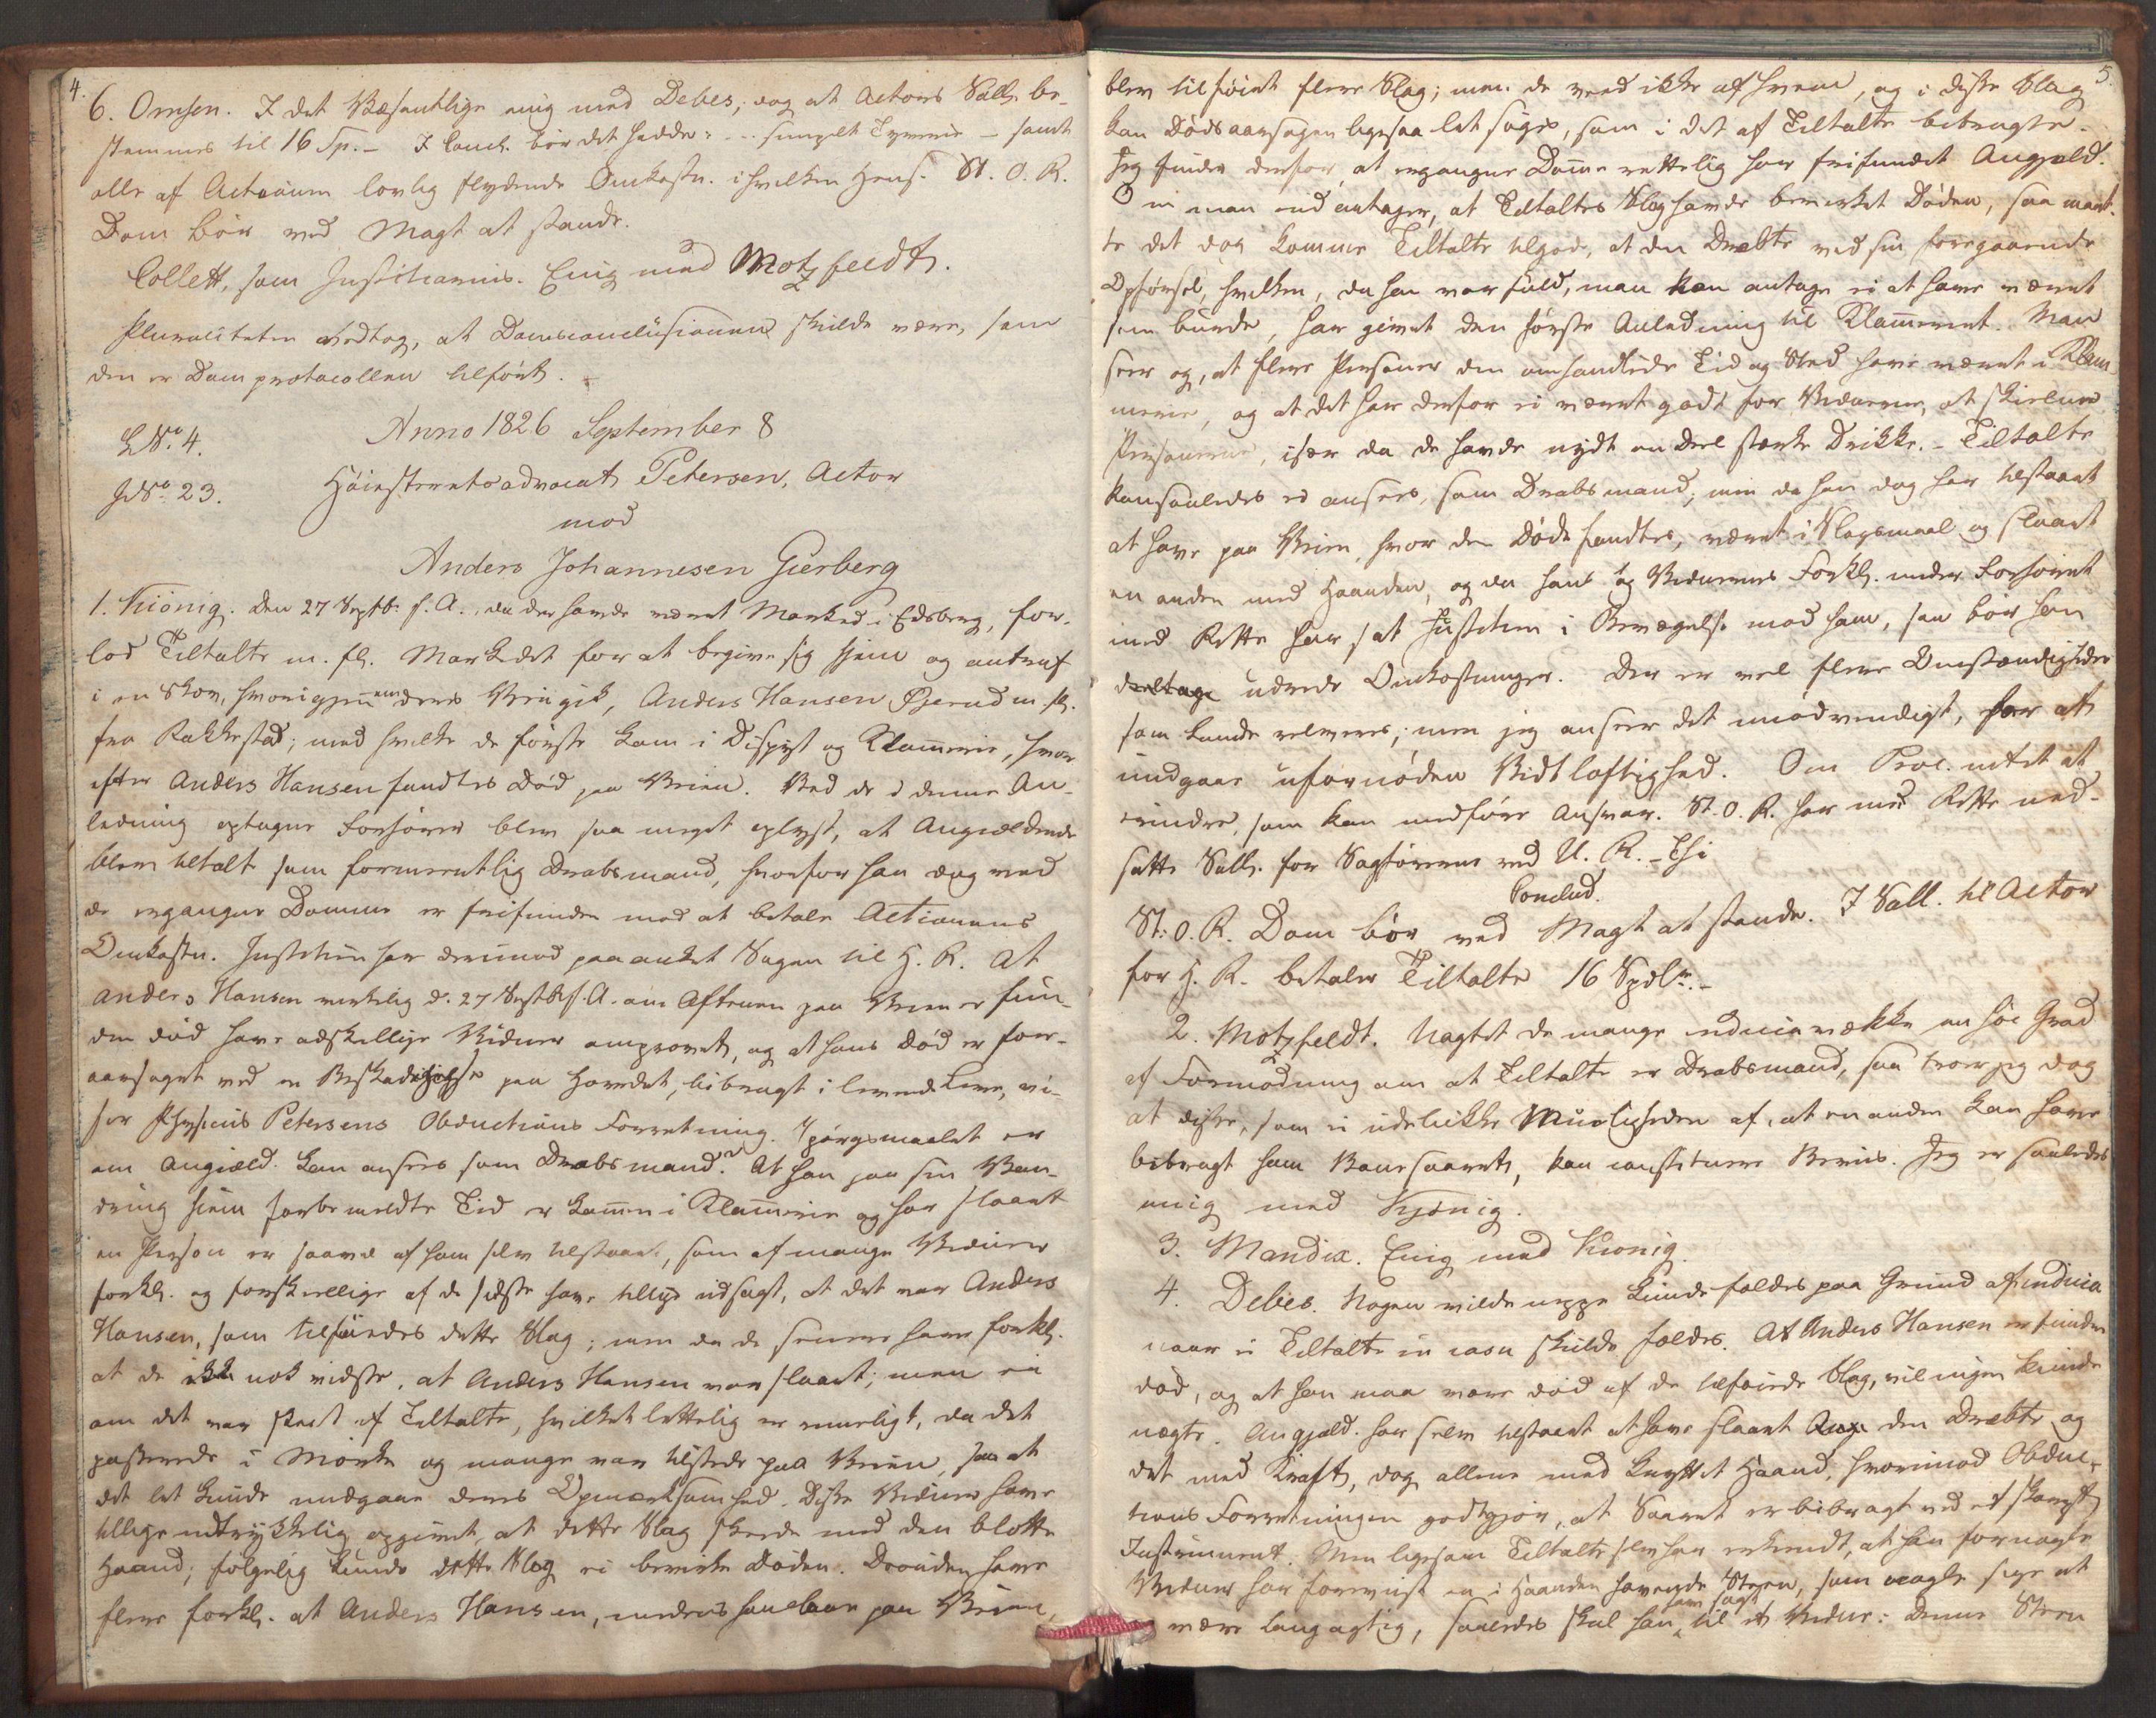 4.
6. Omsen. I det Væsentlige enig med Debes, dog at Actors Sall. be-
stemmes til 16 Sp. – I Concl. bør det hedde: ... simpelt Tyverie – samt
alle af Actionen lovlig flydende Omkostn. i hvilken Hens. St. O. R.
Dom bør ved Magt at stande.
Collett, som Justitiarius. Enig med Motzfeldt.
Pluraliteten vedtog, at Domsconclusionen skulde være, som
den er Domprotocollen tilført.
Anno 1826 September 8
L. No. 4.
Høiesteretsadvocat Petersen, Actor
J. No. 23.
mod
Anders Johannesen Gierberg
1. Kiønig. Den 27 Septbr. f. A., da der havde været Marked i Edsberg, for-
lod Tiltalte m. fl. Markedet for at begive sig hjem og antraf
i en Skov, hvorigjennem deres Vei gik, Anders Hansen Gjerud m. fl.
fra Rakkestad; med hvilke de første kom i Dispyt og Klammerie, hvor-
efter Anders Hansen fandtes død paa Veien. Ved de i denne An-
ledning optagne Forhører blev saa meget oplyst, at Angieldende
blev tiltalt som formeentlig Drabsmand, hvorfor han dog ved
de ergangne Domme er frifunden mod at betale Actionens
Omkostn. Justitien har derimod paaanket Sagen til H. R. At
Anders Hansen virkelig d. 27 Septbr. f. A. om Aftenen paa Veien er fun-
den død have adskillige Vidner omprovet, og at hans Død er foraar-
aarsaget ved en Beskadigelse paa Hovedet, bibragt i levende Live, vi-
ser Physicus Petersens Obductions Forretning. Spørgsmaalet er
om Angield. kan ansees som Drabsmand? At han paa sin Van-
dring hjem forbemeldte Tid er kommen i Klammerie og har slaaet
en Person er saavel af ham selv tilstaaet, som af mange Vidner
forkl. og forskiellige af de sidste have tillige udsagt, at det var Anders
Hansen, som tilføiedes dette Slag; men da de senere have forkl.
at de ikke nok vidste, at Anders Hansen var slaaet; men ei
om det var skeet af Tiltalte, hvilket lettelig er mueligt, da det
passerede i Mørke og mange var tilstede paa Veien, saa at
det let kunde undgaae deres Opmærksomhed. Disse Vidner have
tillige udtrykkelig opgivet, at dette Slag skeede med den blotte
Haand; følgelig kunde dette Slag ei bevirke Døden. Desuden have
flere forkl. at Anders Hansen, medens han laae paa Veien,
5.
blev tilføiet flere Slag; men de veed ikke af hvem, og i disse Slag
kan Dødsaarsagen ligesaa let søges, som i det af Tiltalte bibragte.
Jeg finder derfor, at ergangne Domme rettelig har frifundet Angjeld.
Om man end antager, at Tiltaltes Slag havde bevirket Døden, saa maat-
te det dog komme Tiltalte tilgode, at den Dræbte ved sin foregaaende
Opførsel, hvilken, da han var fuld, man kan antage ei at have været
som burde, har givet den første Anledning til Klammeriet. Man
seer og, at flere Personer den omhandlede Tid og Sted have været i Klam-
merie, og at det har derfor ei været godt for Vidnerne, at skielne
Personerne, især da de havde nydt en Deel stærke Drikke. – Tiltalte
kan saaledes ei ansees, som Drabsmand; men da han dog har tilstaaet
at have paa Veien, hvor den Døde fandtes, været i Slagsmaal og slaaet
en anden med Haanden, og da hans og Vidnernes Forkl. under Forhøret
med Rette har sat Justitien i Bevægelse mod ham, saa bør han
deeltage udrede Omkostninger. Der er vel flere Omstændigheder
som kunde releveres; men jeg anseer det unødvendigt, for at
undgaae ufornøden Vidtløftighed. Om Proc. intet at
erindre, som kan medføre Ansvar. St. O. R. har med Rette ned-
satte Sall. for Sagførerne ved U. R. – Thi
Conclud.
St. O. R. Dom bør ved Magt at stande. I Sall. til Actor
for H. R. betaler Tiltalte 16 Spdlr. –
2. Motzfeldt. Uagtet de mange indicia vække en høi Grad
af Formodning om at Tiltalte er Drabsmand, saa troer jeg dog
at disse, som ei udelukke Mueligheden af, at en anden kan have
bibragt ham Banesaaret, kan constituere Beviis. Jeg er saaledes
enig med Kjønig.
3. Mandix. Enig med Kiønig.
4. Debes. Nogen vilde neppe kunde fældes paa Grund af indicia
naar ei Tiltalte in casu skulde fældes. At Anders Hansen er funden
død, og at han maa være død af de tilføiede Slag, vil ingen kunde
nægte. Angjeld. har selv tilstaaet at have slaaet den Dræbte og
det med Kraft, dog allene med knyttet Haand, hvorimod Obduc-
tions Forretningen godtgjør, at Saaret er bibragt ved et skarpt
Instrument. Men ligesom Tiltalte selv har erkiendt, at han for nogle
Vidner har foreviist en i Haanden havende Steen, som nogle sige at
være langagtig, saaledes skal han have sagt til et Vidne: denne Steen